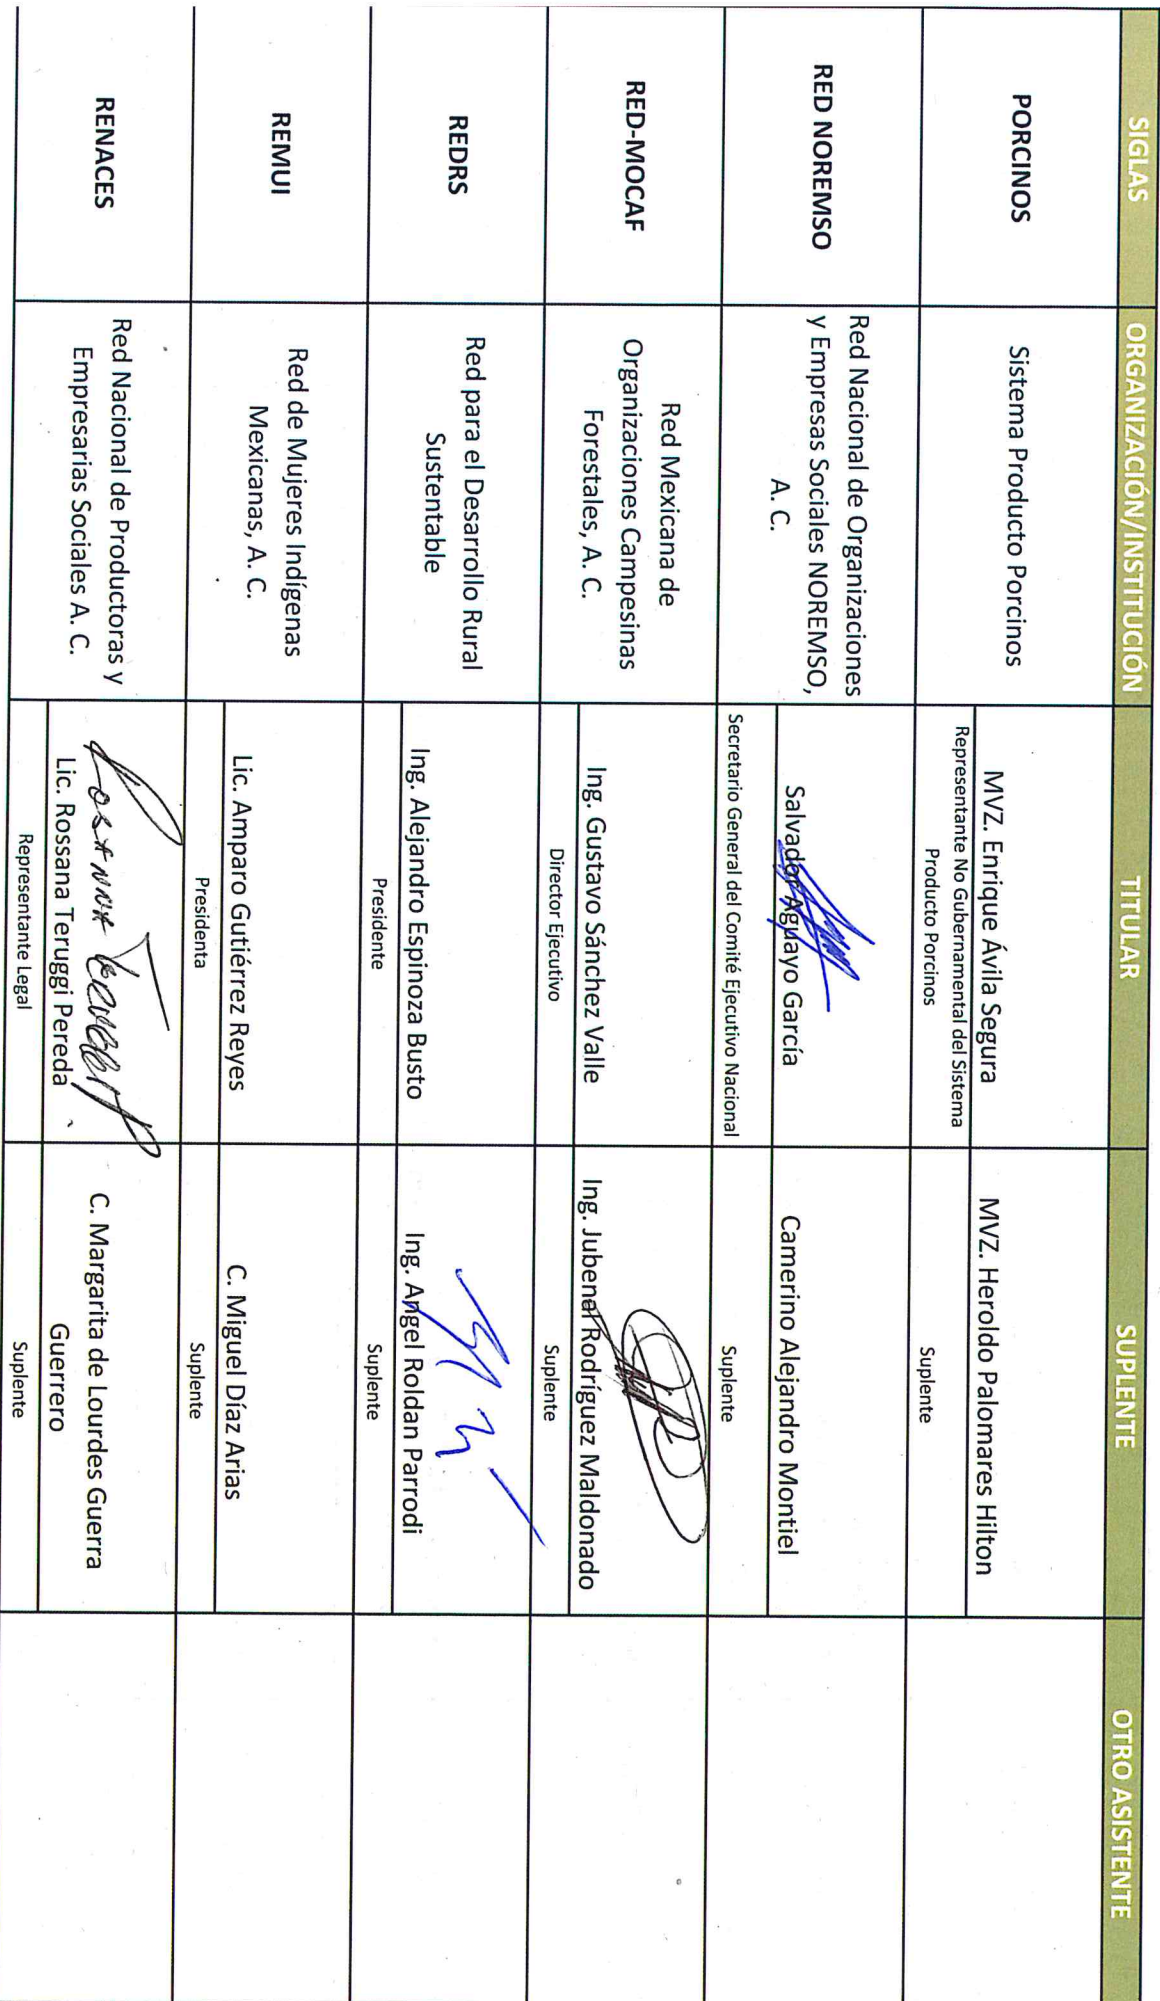 SIGLAS
ORGANIZACIÓN/INSTITUCIÓN
TITULAR
SUPLENTE
OTRO ASISTENTE
PORCINOS
Sistema Producto Porcinos
MVZ. Enrique Ávila Segura
Representante No Gubernamental del Sistema
Producto Porcinos
MVZ. Heroldo Palomares Hilton
Suplente
RED NOREMSO
Red Nacional de Organizaciones
y Empresas Sociales NOREMSO,
A. C.
Salvador Aguayo García
Secretario General del Comité Ejecutivo Nacional
Camerino Alejandro Montiel
Suplente
RED-MOCAF
Red Mexicana de
Organizaciones Campesinas
Forestales, A. C.
Ing. Gustavo Sánchez Valle
Director Ejecutivo
Ing. Jubenal Rodríguez Maldonado
Suplente
REDRS
Red para el Desarrollo Rural
Sustentable
Ing. Alejandro Espinoza Busto
Presidente
Ing. Angel Roldan Parrodi
Suplente
REMUI
Red de Mujeres Indígenas
Mexicanas, A. C.
Lic. Amparo Gutiérrez Reyes
Presidenta
C. Miguel Díaz Arias
Suplente
RENACES
Red Nacional de Productoras y
Empresarias Sociales A. C.
Rosanna Teruggi
Lic. Rossana Teruggi Pereda
Representante Legal
C. Margarita de Lourdes Guerra
Guerrero
Suplente